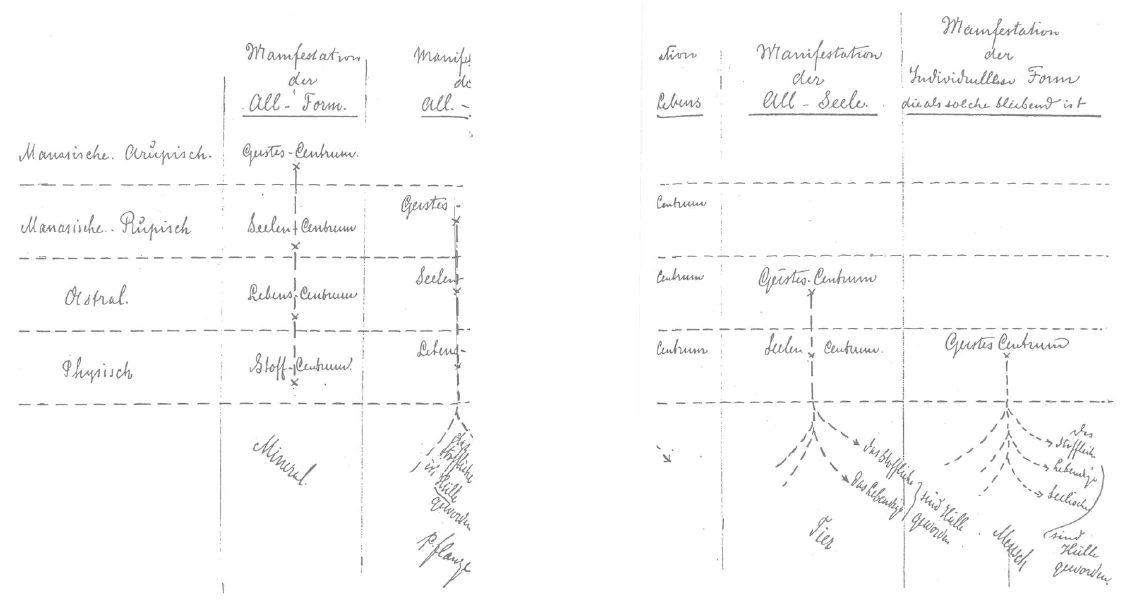 Manifestation
der
All-Form.
Manife
de
All. -
Manasische. Arūpisch.
Geistes-Centrum.
Manasische.. Rūpisch
Seelen Centrum
Geistes -
Astral.
Lebens-Centrum
Seelen-
Physisch
Stoff-Centrum.
Lebens-
Mineral.
das
stoffliche
ist Hülle
geworden
Pflanze
ation
Lebens
Manifestation
der
All - Seele.
Manifestation
der
Individuellen Form
die als solche bleibend ist
Centrum
Centrum
Geistes-Centrum
Centrum
Seelen Centrum.
Geistes Centrum
das Stoffliche
das Lebendige
sind Hülle
geworden
Tier
Das
Stoffliche
Lebendige
Seelische
sind
Hülle
geworden.
Mensch